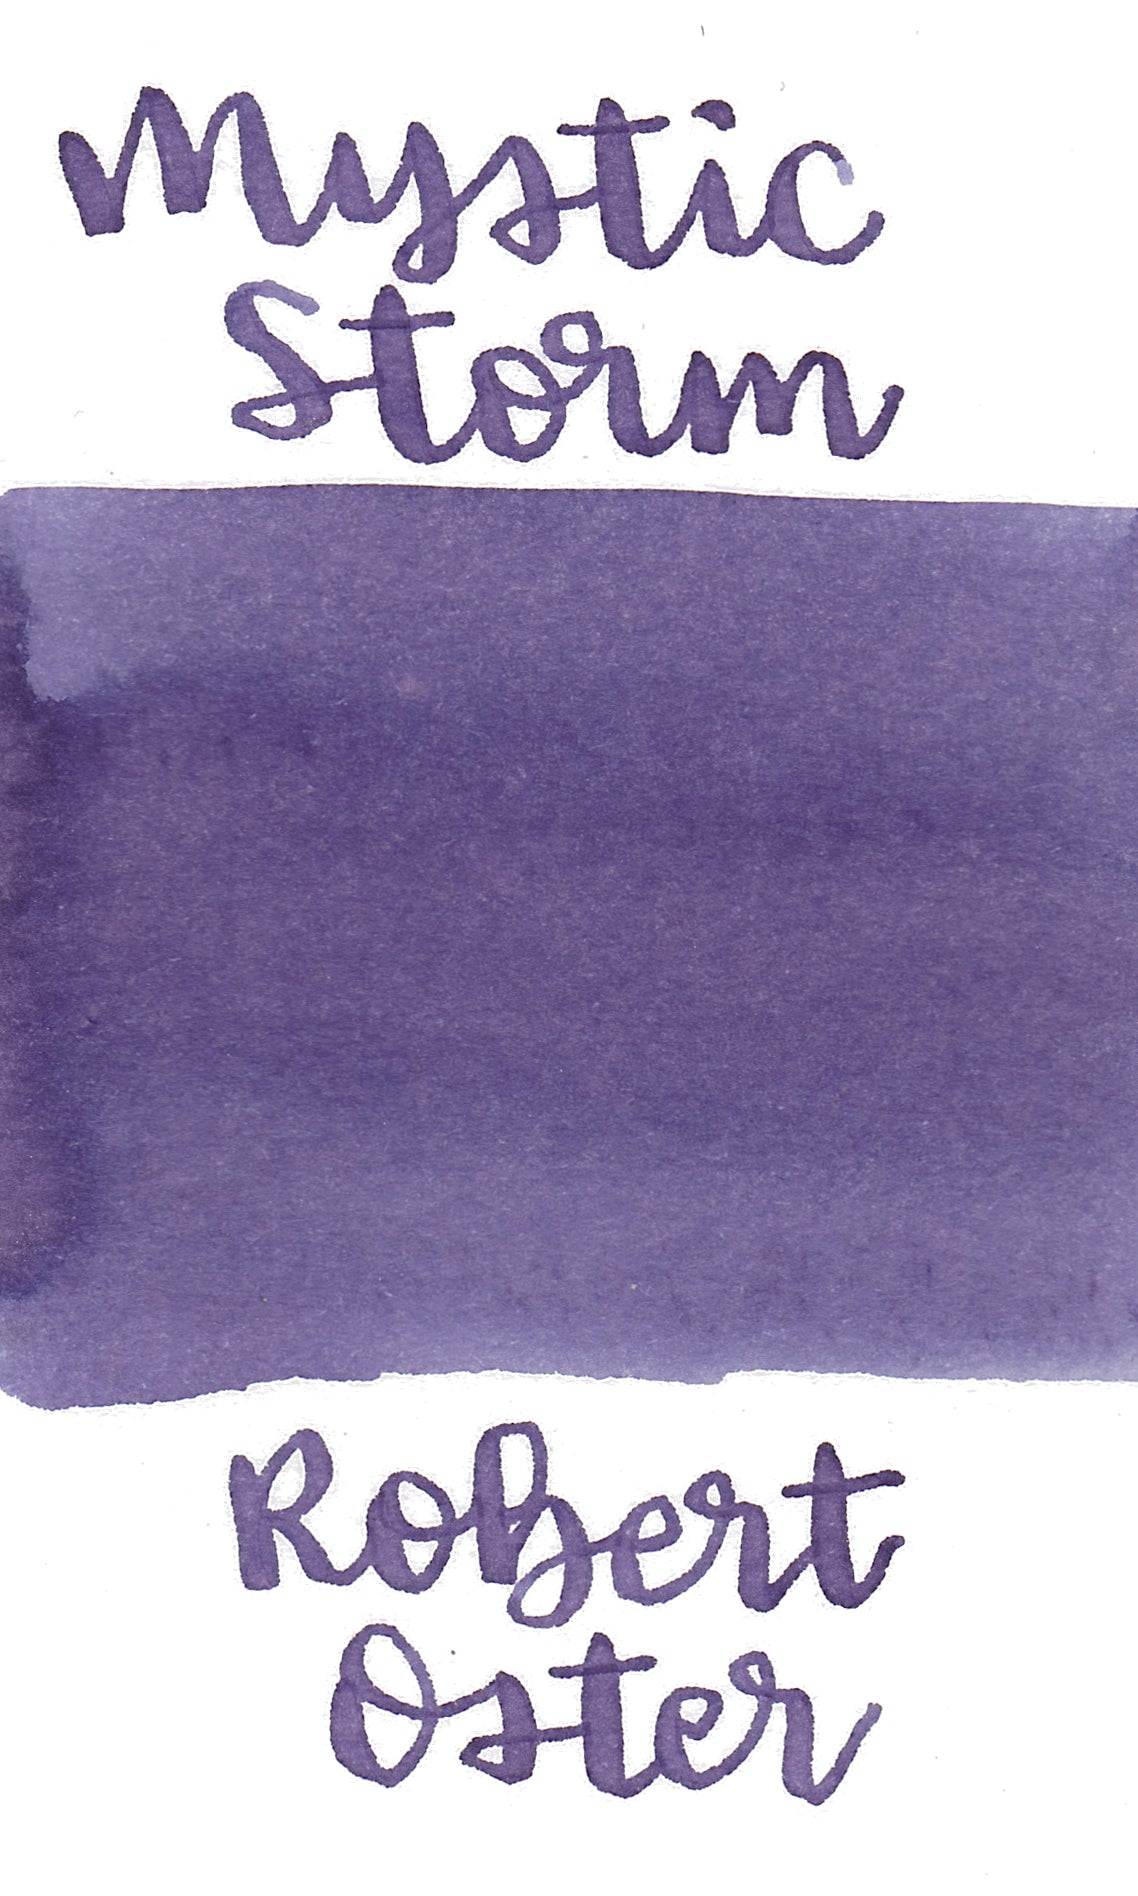 Mystic
Storm
Robert
Oster